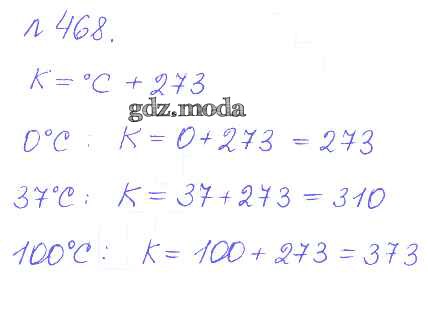 № 468.
K = °C + 273
gdz.moda
0°C : K = 0 + 273 = 273
37°C : K = 37 + 273 = 310
100°C : K = 100 + 273 = 373